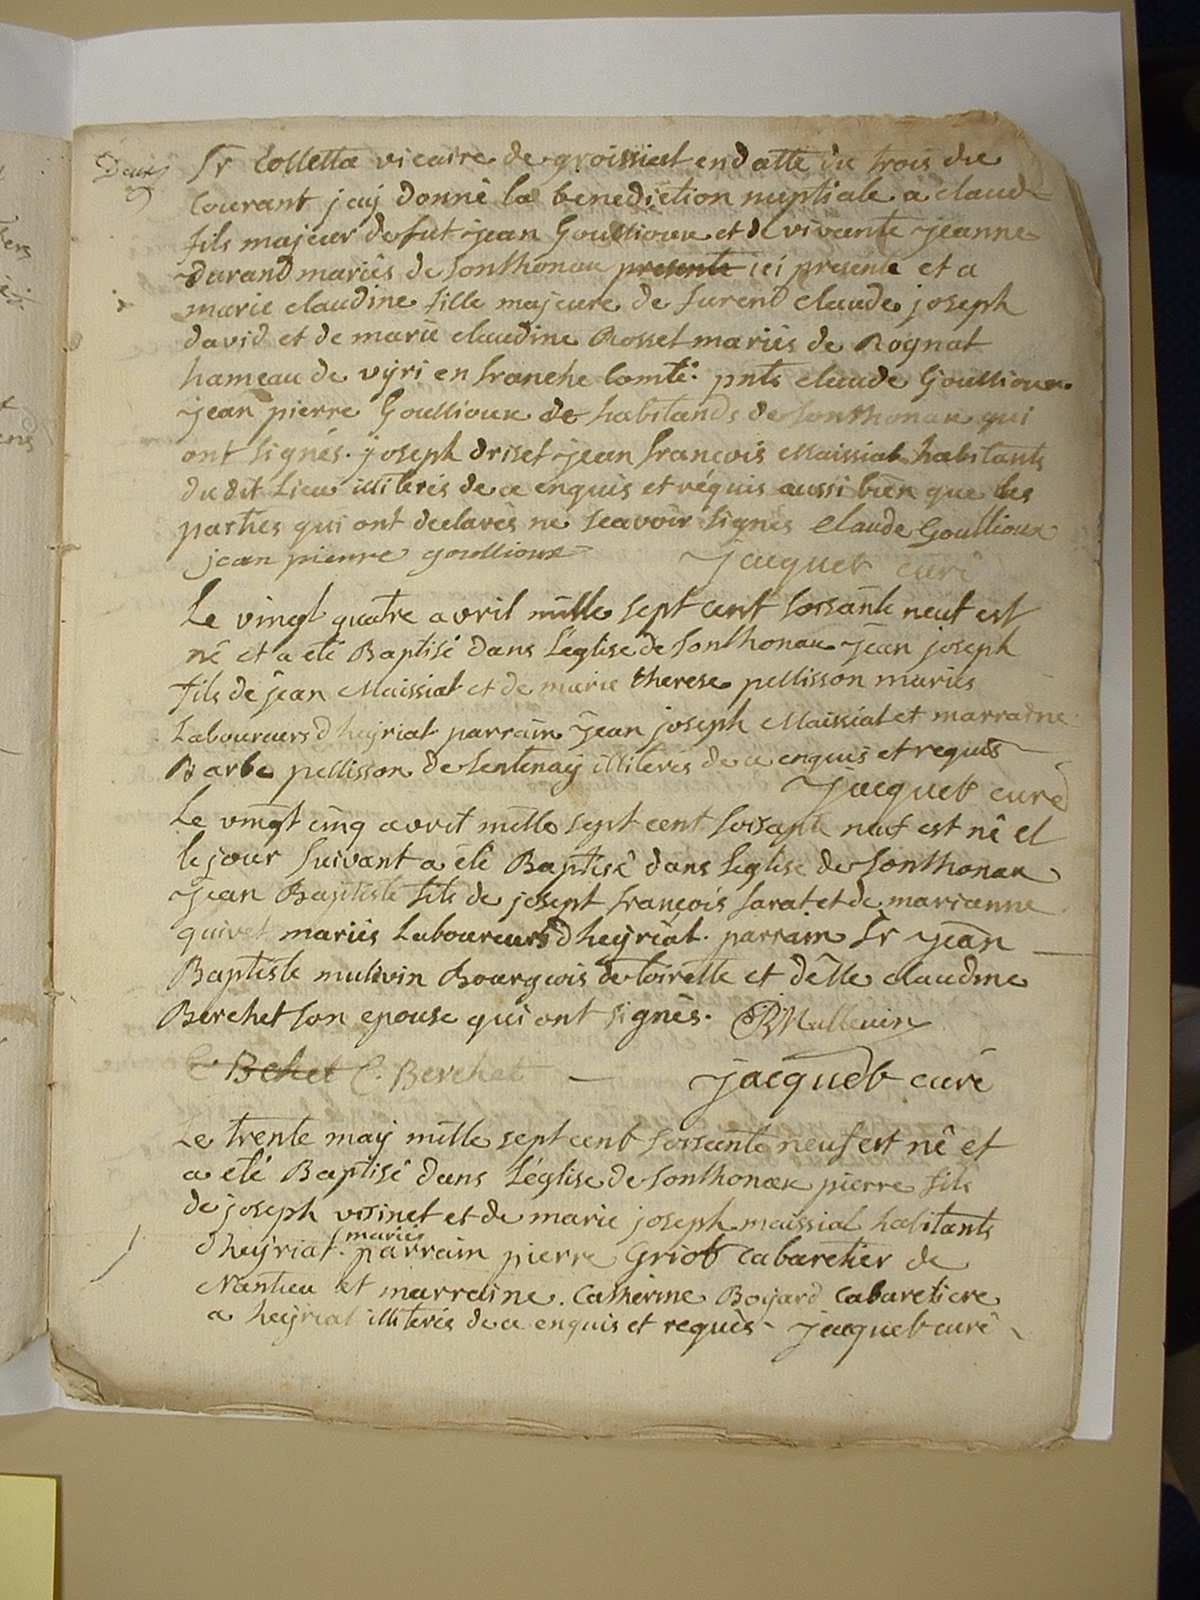 Deux
Sr Colletta vicaire de groissiat en datte du trois du
Courant jay donné la benediction nuptiale a claude
fils majeur defut jean Goullioux et de vivante jeanne
durand mariés de Sonthonax presente ici presente et a
marie claudine fille majeure de furent claude joseph
david et de marie claudine Rosset mariés de Rognat
hameau de vyri en franche Comté. pnts claude Goullioux
jean pierre Goullioux de habitands de Sonthonax qui
ont signés. joseph driset jean françois Maissiat habitants
dudit Lieu illiterés de ce enquis et réquis aussi bien que les
parties qui ont declarés ne scavoir signés Claude Goullioux
jean pierre goullioux Jacquet curé
Le vingt quatre avril mille sept cent soissante neuf est
né et a eté Baptisé dans Léglise de Sonthonax jean joseph
fils de jean Maissiat et de marie therese pellisson mariés
Laboureurs dheyriat parrain jean joseph Maissiat et marraine
Barbe pellisson de Sentenay illiterés de ce enquis et requis
Jacquet curé
Le vingt cinq avril mille sept cent soissante neuf est né et
le jour suivant a été Baptisé dans Leglise de Sonthonax
jean Baptiste fils de josept françois farat et de marianne
quivet mariés Laboureurs dheyriat. parrain Sr jean
Baptiste mulivin Bourgeois de toirette et délle claudine
Berchet son epouse qui ont signés. JB Mullevin
C. Bchet C. Berchet jacquet curé
Le trente may mille sept cent soissante neuf est né et
a eté Baptisé dans Léglise de Sonthonax pierre fils
de joseph voisinet et de marie joseph maissiat habitants
mariés
dheyriat. parrain pierre Griot cabaretier de
Nantua et marraine. Catherine Boyard Cabaretiere
a heyriat illiterés de ce enquis et requis - jacquet curé